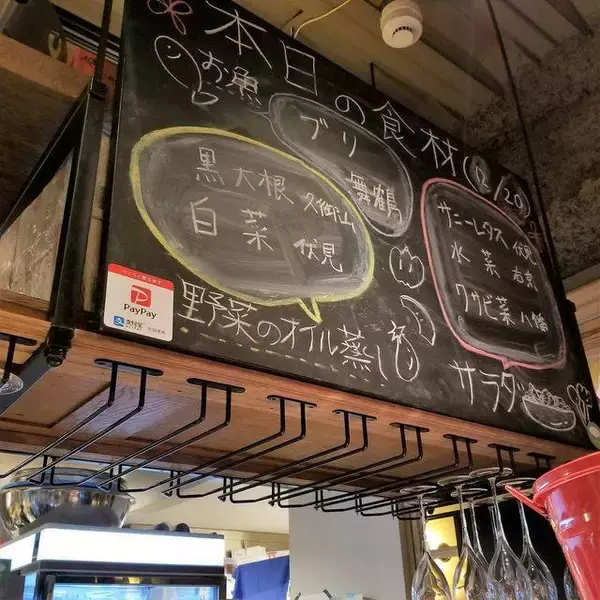 本日の食材(12/20)
お魚
ブリ
舞鶴
黒大根 久御山
白菜 伏見
野菜のオイル蒸し
サニーレタス 伏見
水菜 右京
ワサビ菜 八幡
サラダ
PayPay